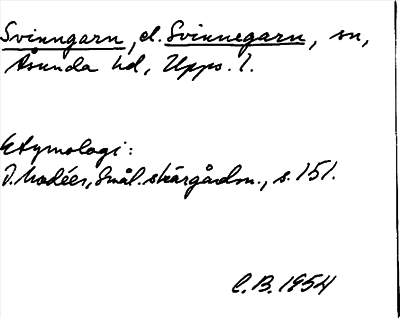 Svinngarn, el. Svinnegarn, sn,
Åsunda hd, Upps. l.
Etymologi:
I. Modéer, Smål. skärgårdsn., s. 151.
C.B. 1954